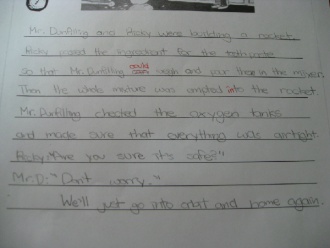 Mr. Dunfilling and Ricky were building a rocket.
Ricky the ingredient for the
so that Mr. Dunfilling could weigh and pour them in the mixers
Then the whole mixture was emptied into the rocket
Mr. Dunfilling checked the oxygen tanks
and made sure that everything was airtight.
Ricky: "Are you sure it's safe?"
Mr. D: "Don't worry."
We'll just go into orbit and home again.